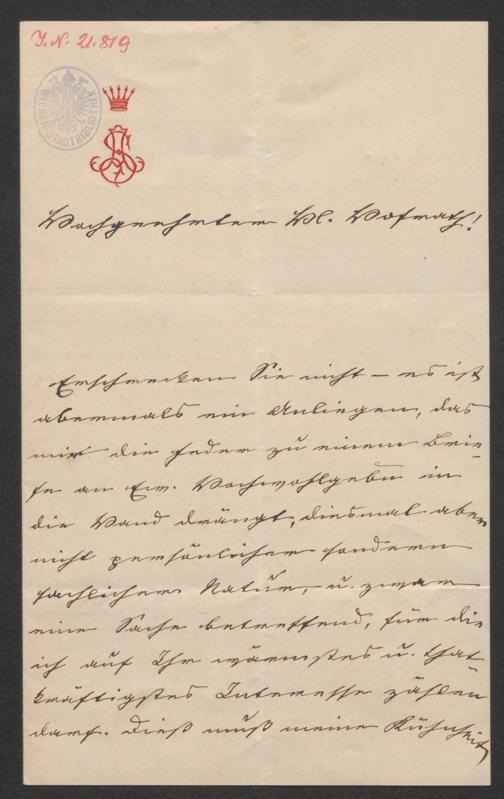 J. N. 21.819
WIENER STADTBIBLIOTHEK
Hochgeehrter Hl. Hofrath!
Erschrecken Sie nicht – es ist
abermals ein Anliegen, das
mir die Feder zu einem Brie-
fe an Ew. Hochwohlgebn in
die Hand drängt, diesmal aber
nicht persönlicher sondern
sachlicher Natur, u. zwar
eine Sache betreffend, für die
ich auf Ihr wärmstes u. that-
kräftigstes Interesse zählen
darf. Dieß muß meine Kühnheit